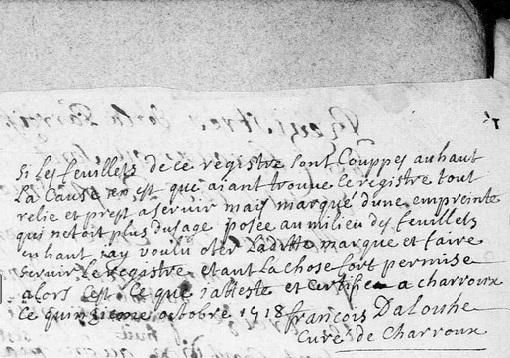 si les feuillets de ce registre sont couppes au haut
la cause en est que aiant trouve ce registre tout
relie et prest a servir mais marqué dune empreinte
qui netoit plus dusage posée au milieu des feuillets
en haut jay voulu oter laditte marque et faire
servir le registre etant la chose fort permise
alors cest ce que jatteste et certifie a charroux
ce quinzieme octobre 1718 françois Dalouhe
curé de Charroux